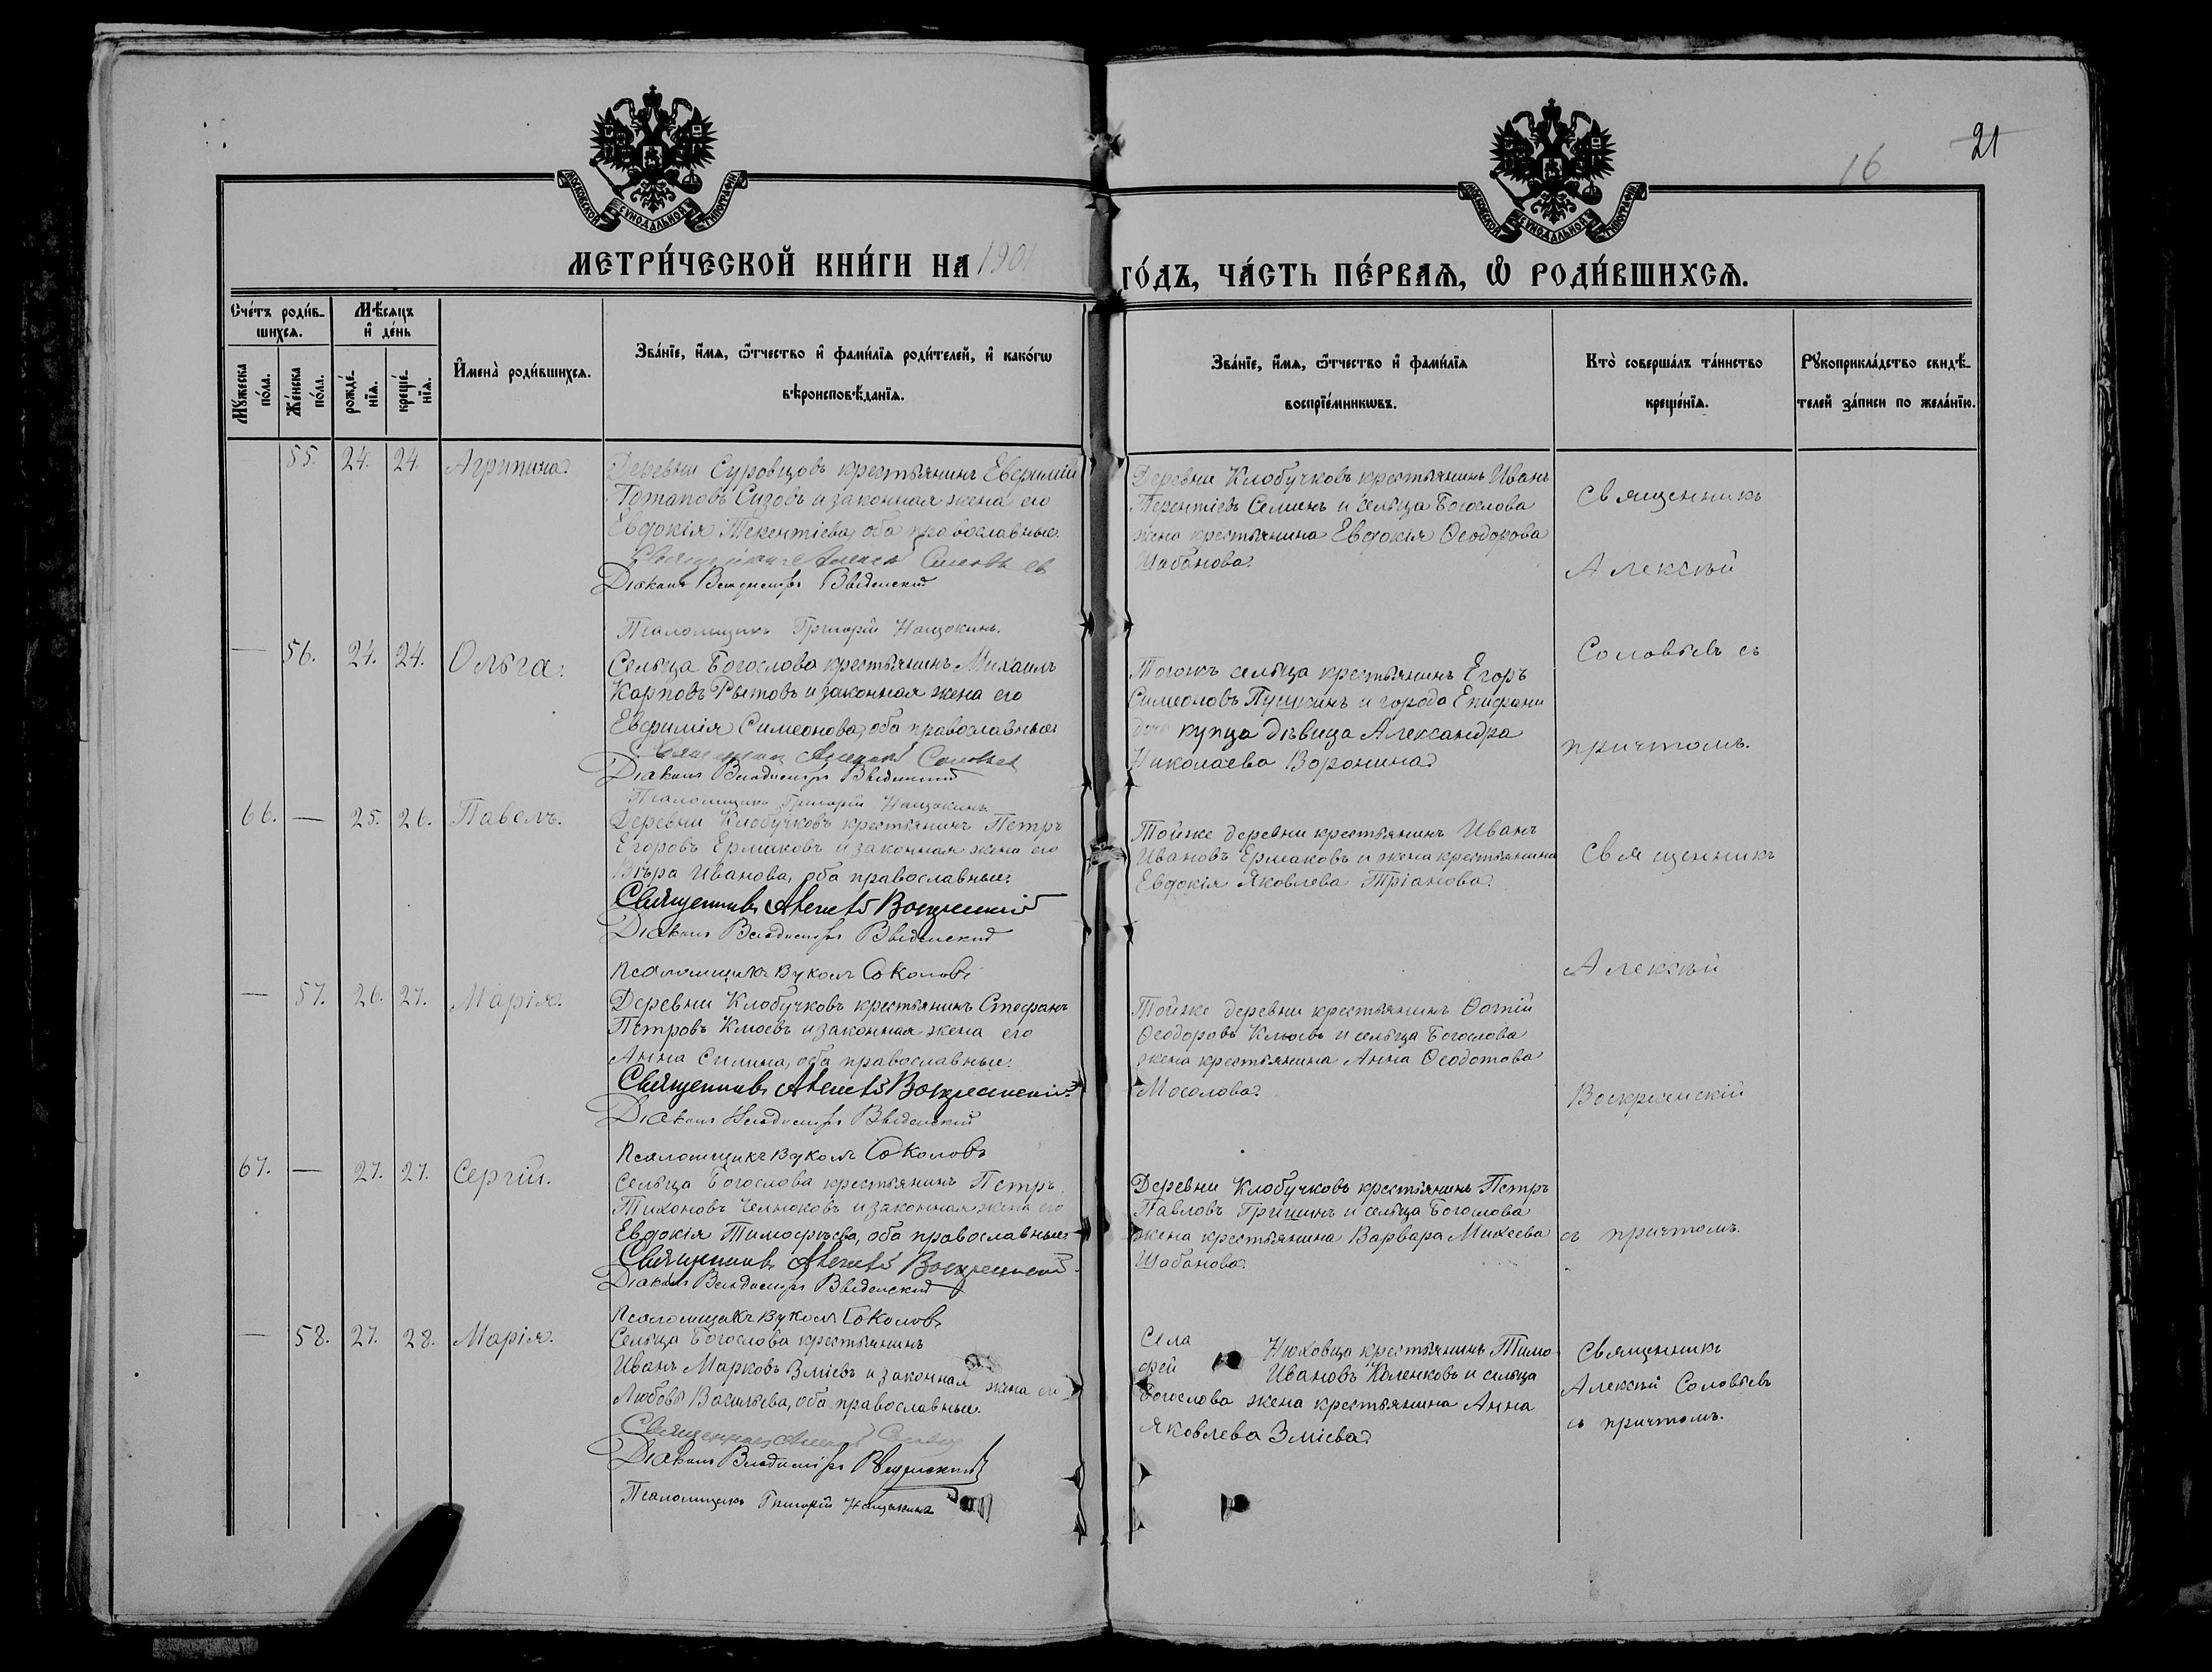 21
16
МОСКОВСКОЙ СУНОДАЛЬНОЙ ТИПОГРАФІИ
МОСКОВСКОЙ СУНОДАЛЬНОЙ ТИПОГРАФІИ
МЕТРИ́ЧЕСКОЙ КНИ́ГИ НА 1901
ГО́ДЪ, ЧА́СТЬ ПЕ́РВАѦ, Ѽ РОДИ́ВШИХСѦ.
Сче́тъ роди́в-
шихсѧ.
Мѣ́сѧцъ
и҆ де́нь
Мꙋ́жеска
по́ла.
Же́нска
по́ла.
рожде́-
нїѧ.
креще́-
нїѧ.
И҆мена̀ роди́вшихсѧ.
Зва́нїе, и҆́мѧ, ѻ҆́тчество и҆ фами́лїѧ роди́телей, и҆ како́гѡ
вѣроисповѣ́данїѧ.
Зва́нїе, и҆́мѧ, ѻ҆́тчество и҆ фами́лїѧ
воспрїе́мникѡвъ.
Кто̀ соверша́лъ та́инство
креще́нїѧ.
Рꙋкоприкла́дство свидѣ́-
телей за́писи по жела́нїю.
55. 24. 24. Агрипина.
Деревни Суровцовъ крестьянинъ Евфимій
Потаповъ Сизовъ и законная жена его
Евдокія Терентіева, оба православные.
Священникъ Алексѣй Соловьевъ
Діаконъ Владиміръ Введенскій
Псаломщикъ Григорій Нащокинъ.
Деревни Клобучковъ крестьянинъ Иванъ
Терентіевъ Семинъ и сельца Богослова
жена крестьянина Евдокія Ѳеодорова
Шабанова.
Священникъ
Алексѣй
Соловьевъ съ
причтомъ.
— 56. 24. 24. Ольга.
Сельца Богослова крестьянинъ Михаилъ
Карповъ Рытовъ и законная жена его
Евфимія Симеонова, оба православные.
Священникъ Алексѣй Соловьевъ
Діаконъ Владиміръ Введенскій
Псаломщикъ Григорій Нащокинъ
Тогожъ сельца крестьянинъ Егоръ
Симеоновъ Пушкинъ и города Епифани
дочь купца дѣвица Александра
Николаева Воронина.
66. — 25. 26. Павелъ.
Деревни Клобучковъ крестьянинъ Петръ
Егоровъ Ермаковъ и законная жена его
Вѣра Иванова, оба православные.
Священникъ Алексѣй Воскресенскій
Діаконъ Владиміръ Введенскій
Псаломщикъ Вуколъ Соколовъ
Тойже деревни крестьянинъ Иванъ
Ивановъ Ермаковъ и жена крестьянина
Евдокія Яковлева Тріанова.
Священникъ
Алексѣй
Воскресенскій
съ причтомъ.
— 57. 26. 27. Марія.
Деревни Клобучковъ крестьянинъ Стефанъ
Петровъ Клюевъ и законная жена его
Анна Силина, оба православные.
Священникъ Алексѣй Воскресенскій
Діаконъ Владиміръ Введенскій
Псаломщикъ Вуколъ Соколовъ
Тойже деревни крестьянинъ Ѳотій
Ѳеодоровъ Клюевъ и сельца Богослова
жена крестьянина Анна Ѳеодотова
Мосолова.
67. — 27. 27. Сергій.
Сельца Богослова крестьянинъ Петръ
Тихоновъ Челноковъ и законная жена его
Евдокія Тимофѣева, оба православные.
Священникъ Алексѣй Воскресенскій
Діаконъ Владиміръ Введенскій
Псаломщикъ Вуколъ Соколовъ
Деревни Клобучковъ крестьянинъ Петръ
Павловъ Гришинъ и сельца Богослова
жена крестьянина Варвара Михеева
Шабанова.
— 58. 27. 28. Марія.
Сельца Богослова крестьянинъ
Иванъ Марковъ Зміевъ и законная жена его
Любовь Васильева, оба православные.
Священникъ Алексѣй Соловьевъ
Діаконъ Владиміръ Введенскій
Псаломщикъ Григорій Нащокинъ
Села Нюховца крестьянинъ Тимо-
фей Ивановъ Коленковъ и сельца
Богослова жена крестьянина Анна
Яковлева Зміева.
Священникъ
Алексѣй Соловьевъ
съ причтомъ.